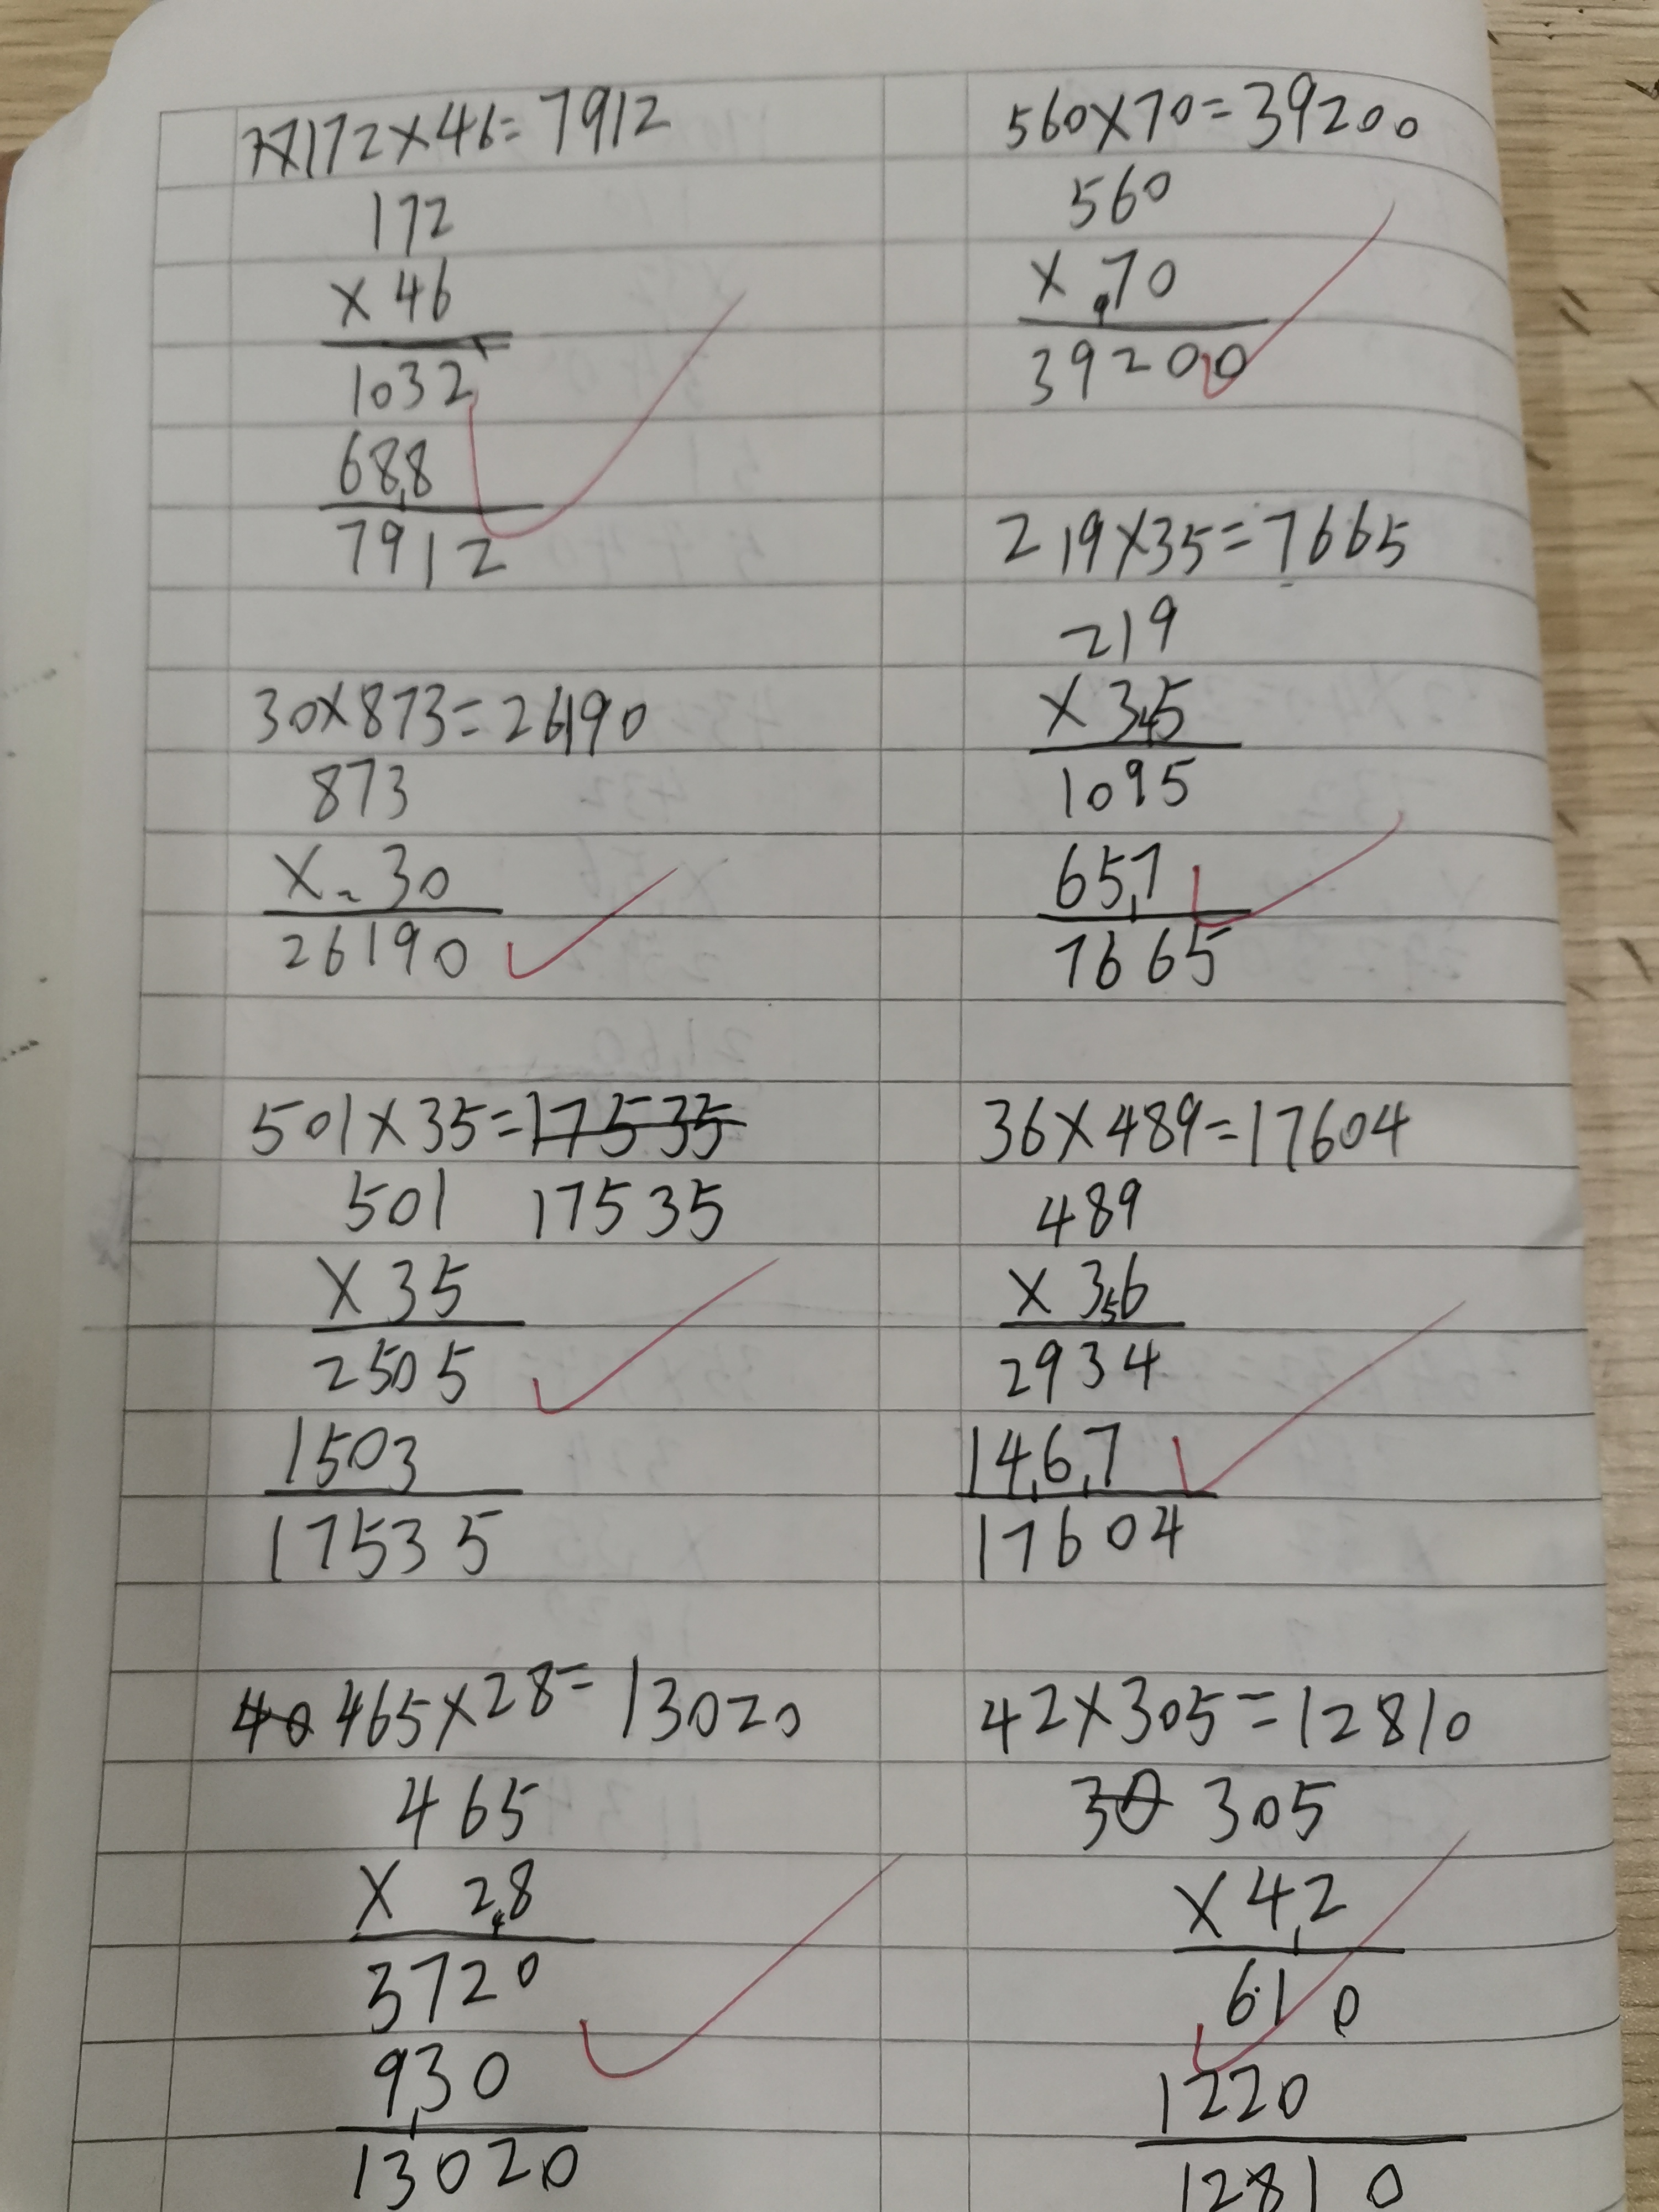 172×46=7912
172
×46
1032
688
7912
30×873=26190
873
×30
26190
501×35=17535
501 17535
×35
2505
1503
17535
40 465×28=13020
465
× 28
3720
930
13020
560×70=39200
560
×70
39200
219×35=7665
219
×35
1095
657
7665
36×489=17604
489
×36
2934
1467
17604
42×305=12810
30 305
×42
610
1220
12810